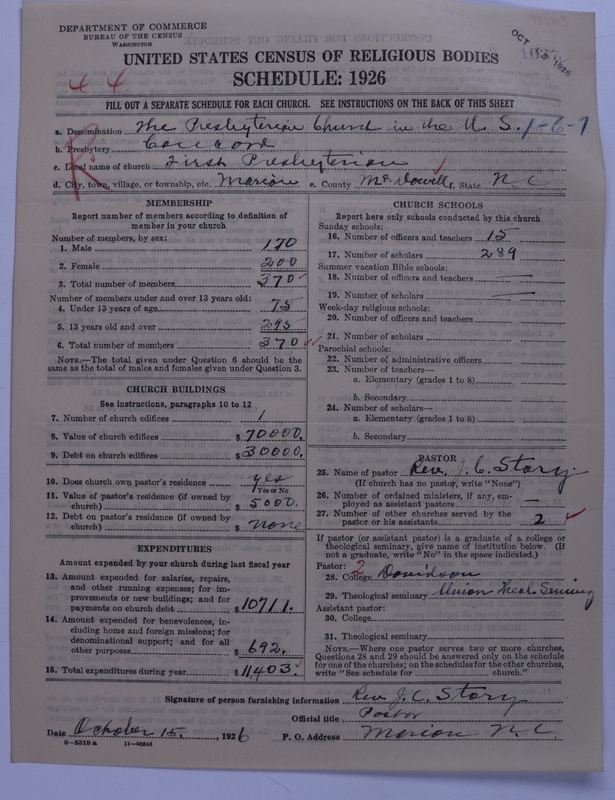 DEPARTMENT OF COMMERCE
BUREAU OF THE CENSUS
WASHINGTON
OCT 1926
UNITED STATES CENSUS OF RELIGIOUS BODIES
SCHEDULE: 1926
44
FILL OUT A SEPARATE SCHEDULE FOR EACH CHURCH. SEE INSTRUCTIONS ON THE BACK OF THIS SHEET
a. Denomination The Presbyterian Church in the U. S. 1-6-7
b. Presbytery Concord
c. Local name of church First Presbyterian
d. City, town, village, or township, etc. Marion e. County McDowell f. State N C
MEMBERSHIP
Report number of members according to definition of member in your church
Number of members, by sex:
1. Male 170
2. Female 200
3. Total number of members 370
Number of members under and over 13 years old:
4. Under 13 years of age 75
5. 13 years old and over 295
6. Total number of members 370
NOTE.—The total given under Question 6 should be the same as the total of males and females given under Question 3.
CHURCH BUILDINGS
See instructions, paragraphs 10 to 12
7. Number of church edifices 1
8. Value of church edifices $ 70000.
9. Debt on church edifices $ 30000.
10. Does church own pastor's residence yes
Yes or No
11. Value of pastor's residence (if owned by church) $ 5000.
12. Debt on pastor's residence (if owned by church) $ none
EXPENDITURES
Amount expended by your church during last fiscal year
13. Amount expended for salaries, repairs, and other running expenses; for improvements or new buildings; and for payments on church debt $ 10711.
14. Amount expended for benevolences, including home and foreign missions; for denominational support; and for all other purposes $ 692.
15. Total expenditures during year $ 11403.
CHURCH SCHOOLS
Report here only schools conducted by this church
Sunday schools:
16. Number of officers and teachers 15
17. Number of scholars 289
Summer vacation Bible schools:
18. Number of officers and teachers —
19. Number of scholars —
Week-day religious schools:
20. Number of officers and teachers
21. Number of scholars
Parochial schools:
22. Number of administrative officers
23. Number of teachers—
a. Elementary (grades 1 to 8)
b. Secondary
24. Number of scholars—
a. Elementary (grades 1 to 8)
b. Secondary
PASTOR
25. Name of pastor Rev. J. C. Story
(If church has no pastor, write "None")
26. Number of ordained ministers, if any, employed as assistant pastors —
27. Number of other churches served by the pastor or his assistants 2
If pastor (or assistant pastor) is a graduate of a college or theological seminary, give name of institution below. (If not a graduate, write "No" in the space indicated.)
Pastor: 2
28. College Davidson
29. Theological seminary Union Theol. Seminary
Assistant pastor:
30. College
31. Theological seminary
NOTE.—Where one pastor serves two or more churches, Questions 28 and 29 should be answered only on the schedule for one of the churches; on the schedules for the other churches, write "See schedule for church."
Signature of person furnishing information Rev. J. C. Story
Official title Pastor
Date October 15, 1926 P. O. Address Marion N. C.
8-5318 a